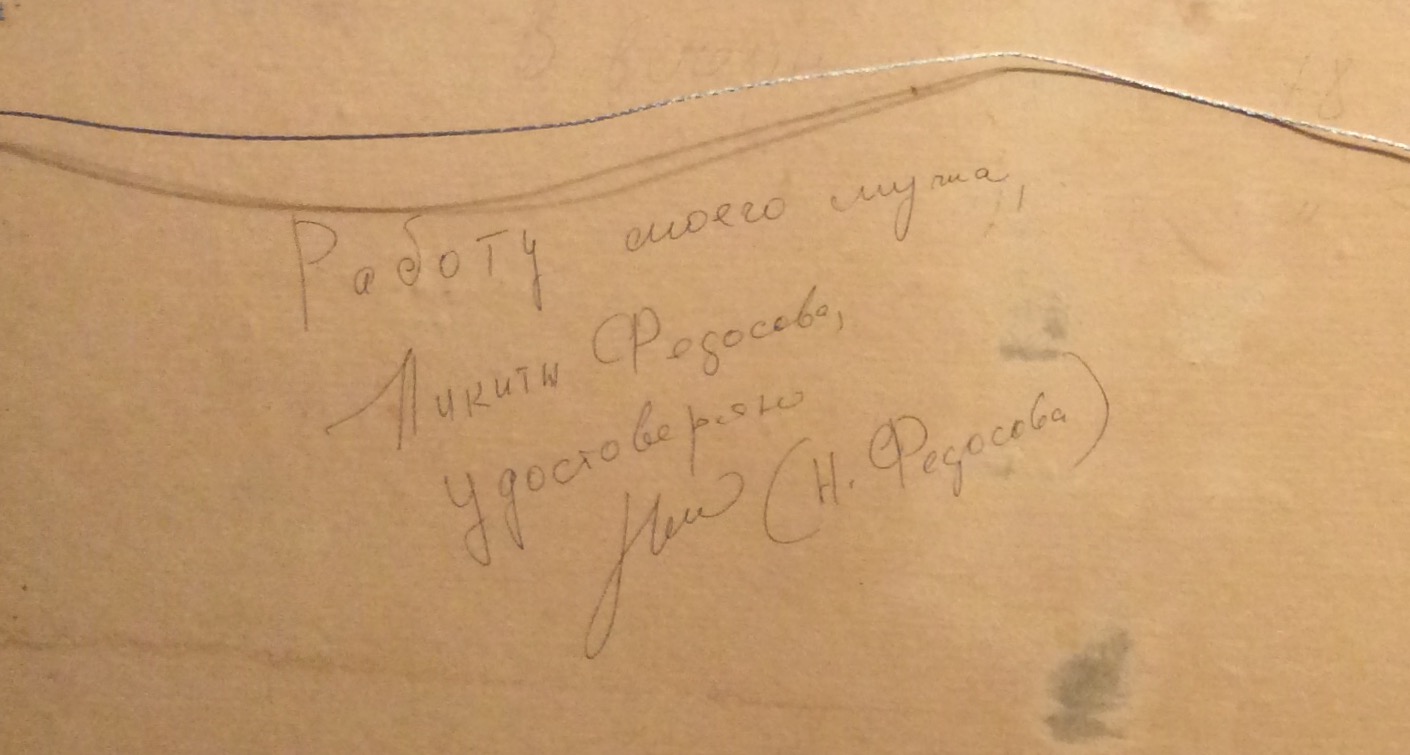 Работу моего мужа,
Никиты Федосова,
удостоверяю
(Н. Федосова)